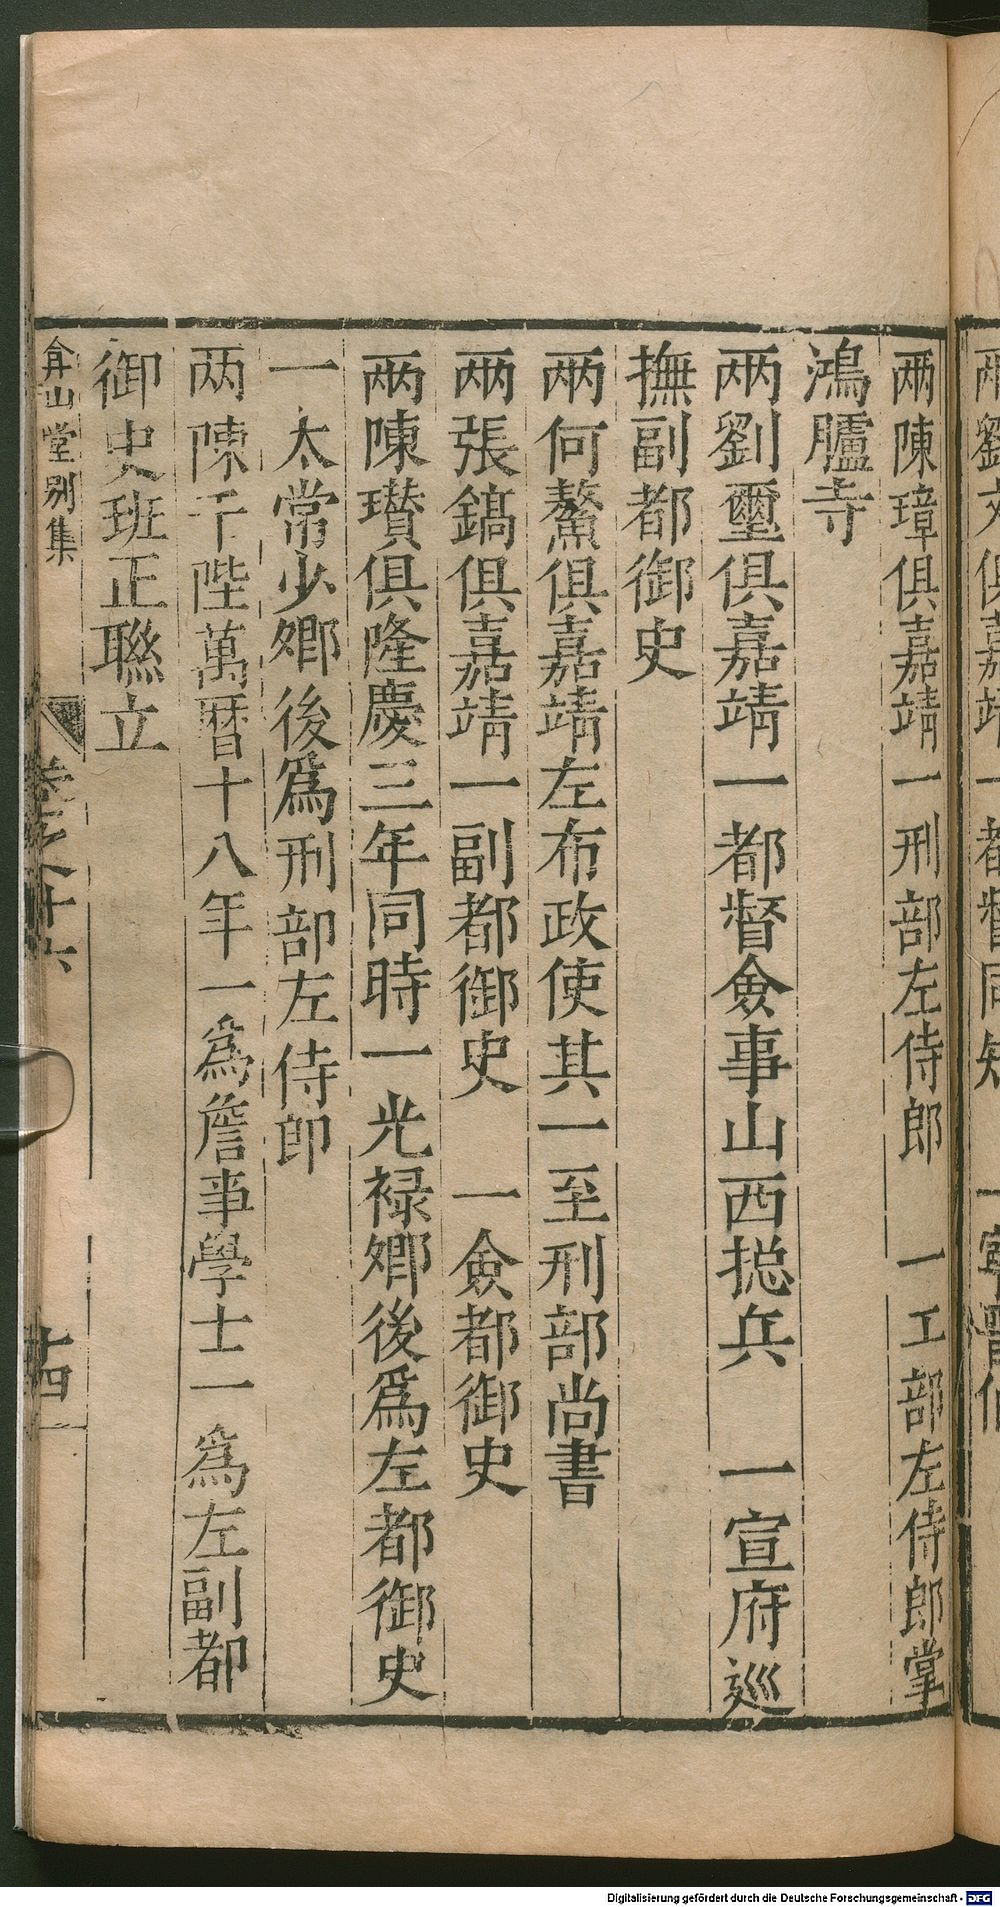 兩陳璋俱嘉靖一刑部左侍郎 一工部左侍郎掌
鴻臚寺
兩劉璽俱嘉靖一都督僉事山西摠兵 一宣府巡
撫副都御史
兩何鰲俱嘉靖左布政使其一至刑部尚書
兩張鎬俱嘉靖一副都御史 一僉都御史
兩陳瓚俱隆慶三年同時一光禄卿後爲左都御史
一太常少卿後爲刑部左侍郎
兩陳于陛萬曆十八年一爲詹事學士一爲左副都
御史班正聯立
弇山堂別集 卷之十六 十四
Digitalisierung gefördert durch die Deutsche Forschungsgemeinschaft - DFG